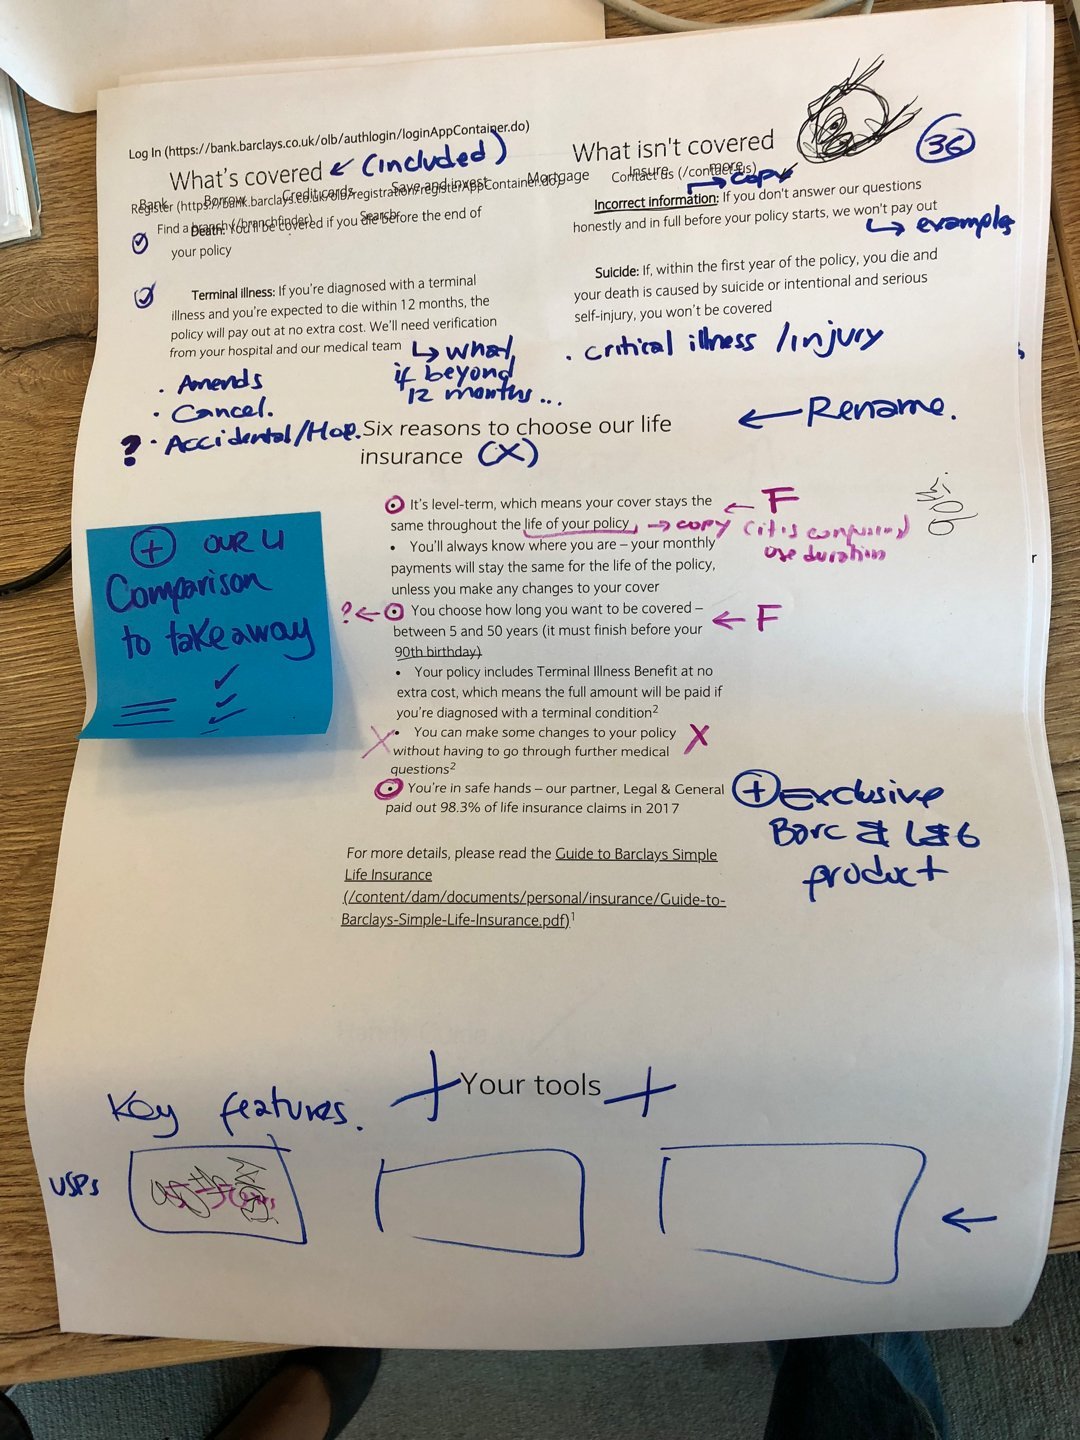 Log In (https://bank.barclays.co.uk/olb/authlogin/loginAppContainer.do)
What's covered ← (included)
What isn't covered
36
Bank Borrow Credit cards Save and invest Mortgage Insure Contact us (/contact-us) more
Register (https://bank.barclays.co.uk/olb/registration/registerAppContainer.do)
Find a branch (/branchfinder) Search
→ copy
Death: You'll be covered if you die before the end of
your policy
Terminal illness: If you're diagnosed with a terminal
illness and you're expected to die within 12 months, the
policy will pay out at no extra cost. We'll need verification
from your hospital and our medical team
↳ what
if beyond
12 months...
Incorrect information: If you don't answer our questions
honestly and in full before your policy starts, we won't pay out
↳ examples
Suicide: If, within the first year of the policy, you die and
your death is caused by suicide or intentional and serious
self-injury, you won't be covered
· critical illness / injury
· Amends
· Cancel.
? · Accidental/Hop.
Six reasons to choose our life
insurance (X)
← Rename.
It's level-term, which means your cover stays the
same throughout the life of your policy
← F
→ copy (it is confusing)
use duration
• You'll always know where you are – your monthly
payments will stay the same for the life of the policy,
unless you make any changes to your cover
? ← You choose how long you want to be covered –
between 5 and 50 years (it must finish before your
90th birthday)
← F
• Your policy includes Terminal Illness Benefit at no
extra cost, which means the full amount will be paid if
you're diagnosed with a terminal condition2
X • You can make some changes to your policy X
without having to go through further medical
questions2
You're in safe hands – our partner, Legal & General
paid out 98.3% of life insurance claims in 2017
+ OUR
Comparison
to takeaway
+ Exclusive
Barc & L&G
product
For more details, please read the Guide to Barclays Simple
Life Insurance
(/content/dam/documents/personal/insurance/Guide-to-
Barclays-Simple-Life-Insurance.pdf)1
Key features.
+ Your tools +
USPs
←